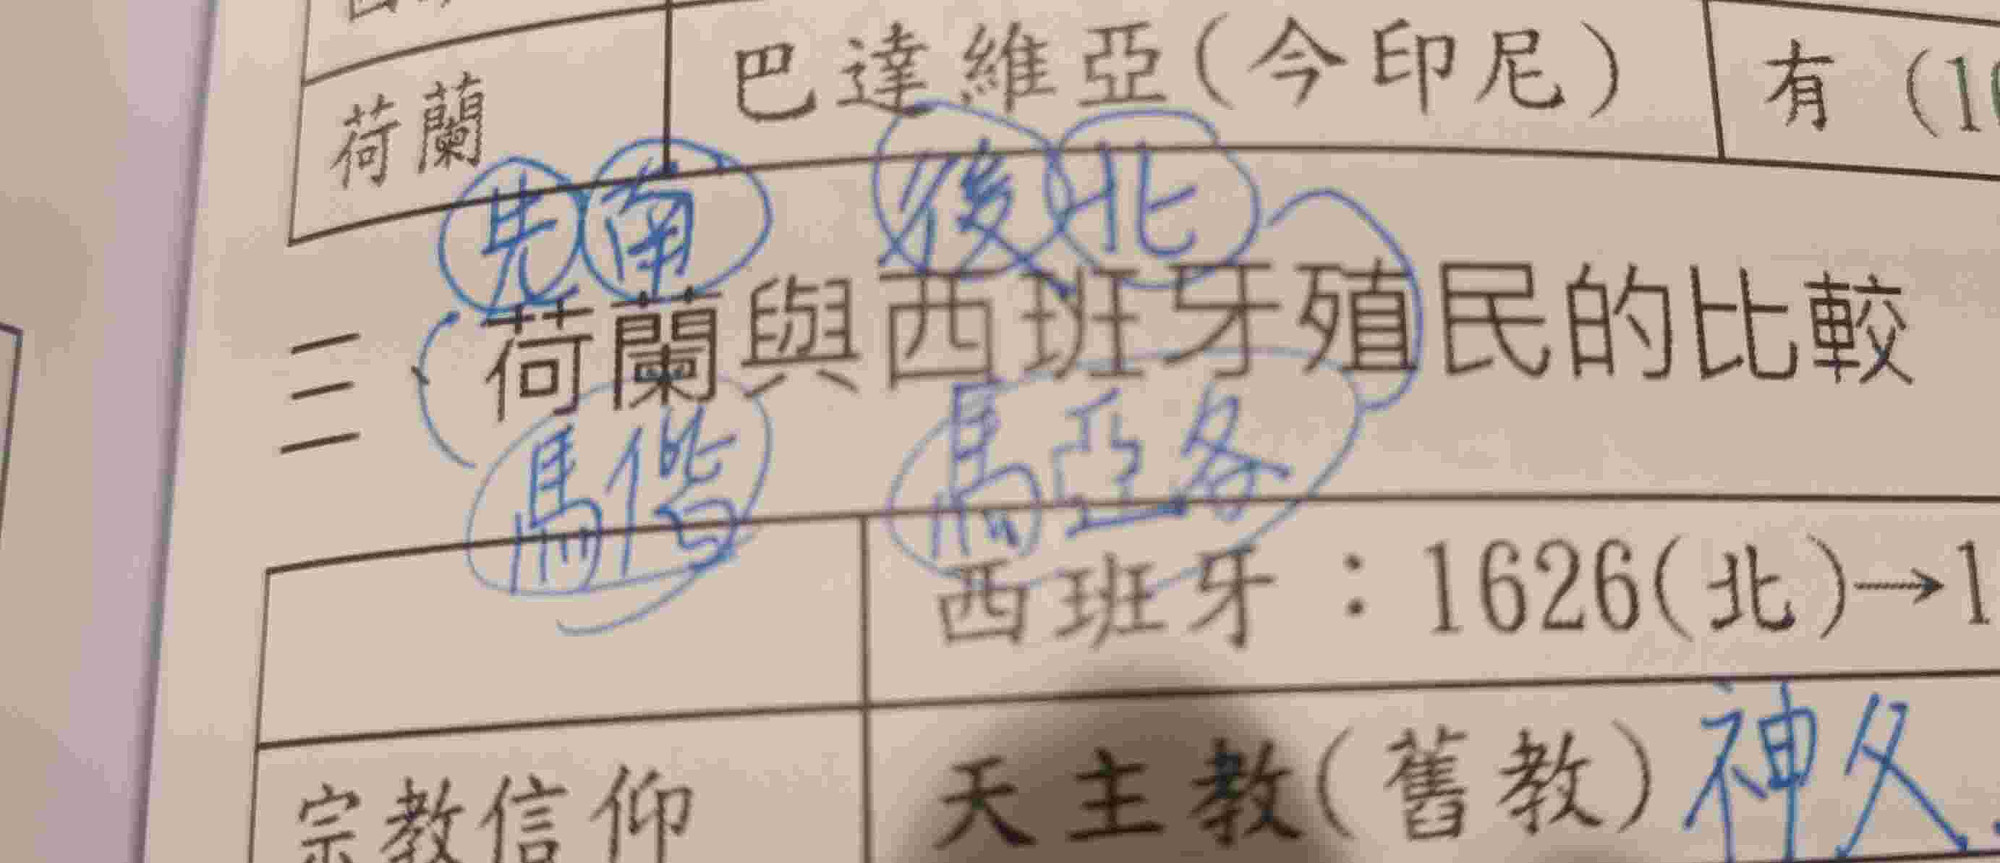 荷蘭 巴達維亞(今印尼) 有(1
先南 後北
三 荷蘭與西班牙殖民的比較
馬偕 馬亞各
西班牙：1626(北)→1
宗教信仰 天主教(舊教) 神父